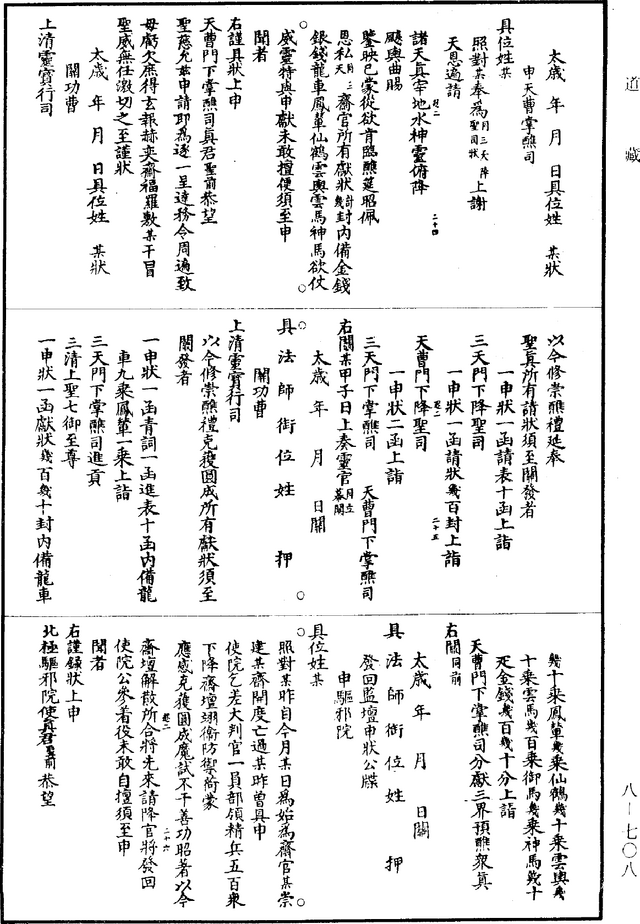 道藏
太歲　年　月　日具位姓　某狀
申天曹掌醮司
具位姓某
照對某奉為月三天降聖司狀上謝
天恩遍請
諸天真宰地水神靈俯降
飈輿曲賜
鑒映已蒙從欲肯臨醮筵昭佩
恩私月三天齋官所有獻狀計幾封內備金錢
銀錢龍車鳳輦仙鶴雲輿雲馬神馬欲仗
威靈特與申獻未敢擅便須至申
聞者
右謹具狀上申
天曹門下掌醮司真君聖前恭望
聖慈允茲申請即為逐一呈達務令周遍致
毋虧欠庶得玄報赫奕齋福羅敷某干冒
聖威無任激切之至謹狀
太歲　年　月　日具位姓　某狀
關功曹
上清靈寶行司
以今修崇醮禮延奉
聖真所有請狀須至關發者
一申狀一函請表十函上詣
三天門下降聖司
一申狀一函請狀幾百封上詣
天曹門下降聖司
一申狀二函上詣
三天門下掌醮司　天曹門下掌醮司
右關某甲子日上奏靈官
太歲　年　月　日關
具法師銜位姓　押
關功曹
上清靈寶行司
以今修崇醮禮克獲圓成所有獻狀須至
關發者
一申狀一函青詞一函進表十函內備龍
車九乘鳳輦一乘上詣
三天門下掌醮司進貢
三清上聖七御至尊
一申狀一函獻狀幾百幾十封內備龍車
幾十乘鳳輦幾乘仙鶴幾十乘雲輿幾
十乘雲馬幾百乘御馬幾乘神馬幾十
疋金錢幾百幾十分上詣
天曹門下掌醮司分獻三界預醮眾真
右關同前
太歲　年　月　日關
具法師銜位姓　押
發回監壇申狀公牒
申驅邪院
具位姓某
照對某昨自今月某日為始為齋官某崇
建某齋開度亡過某昨曾具申
使院乞差大判官一員部領精兵五百眾
下降齋壇翊衛防禦銜蒙
應感克獲圓成魔試不干善功昭著以今
齋壇解散所合將先來請降官將發回
使院公參着役未敢自擅須至申
聞者
右謹錄狀上申
北極驅邪院使真君聖前恭望
八—七〇八